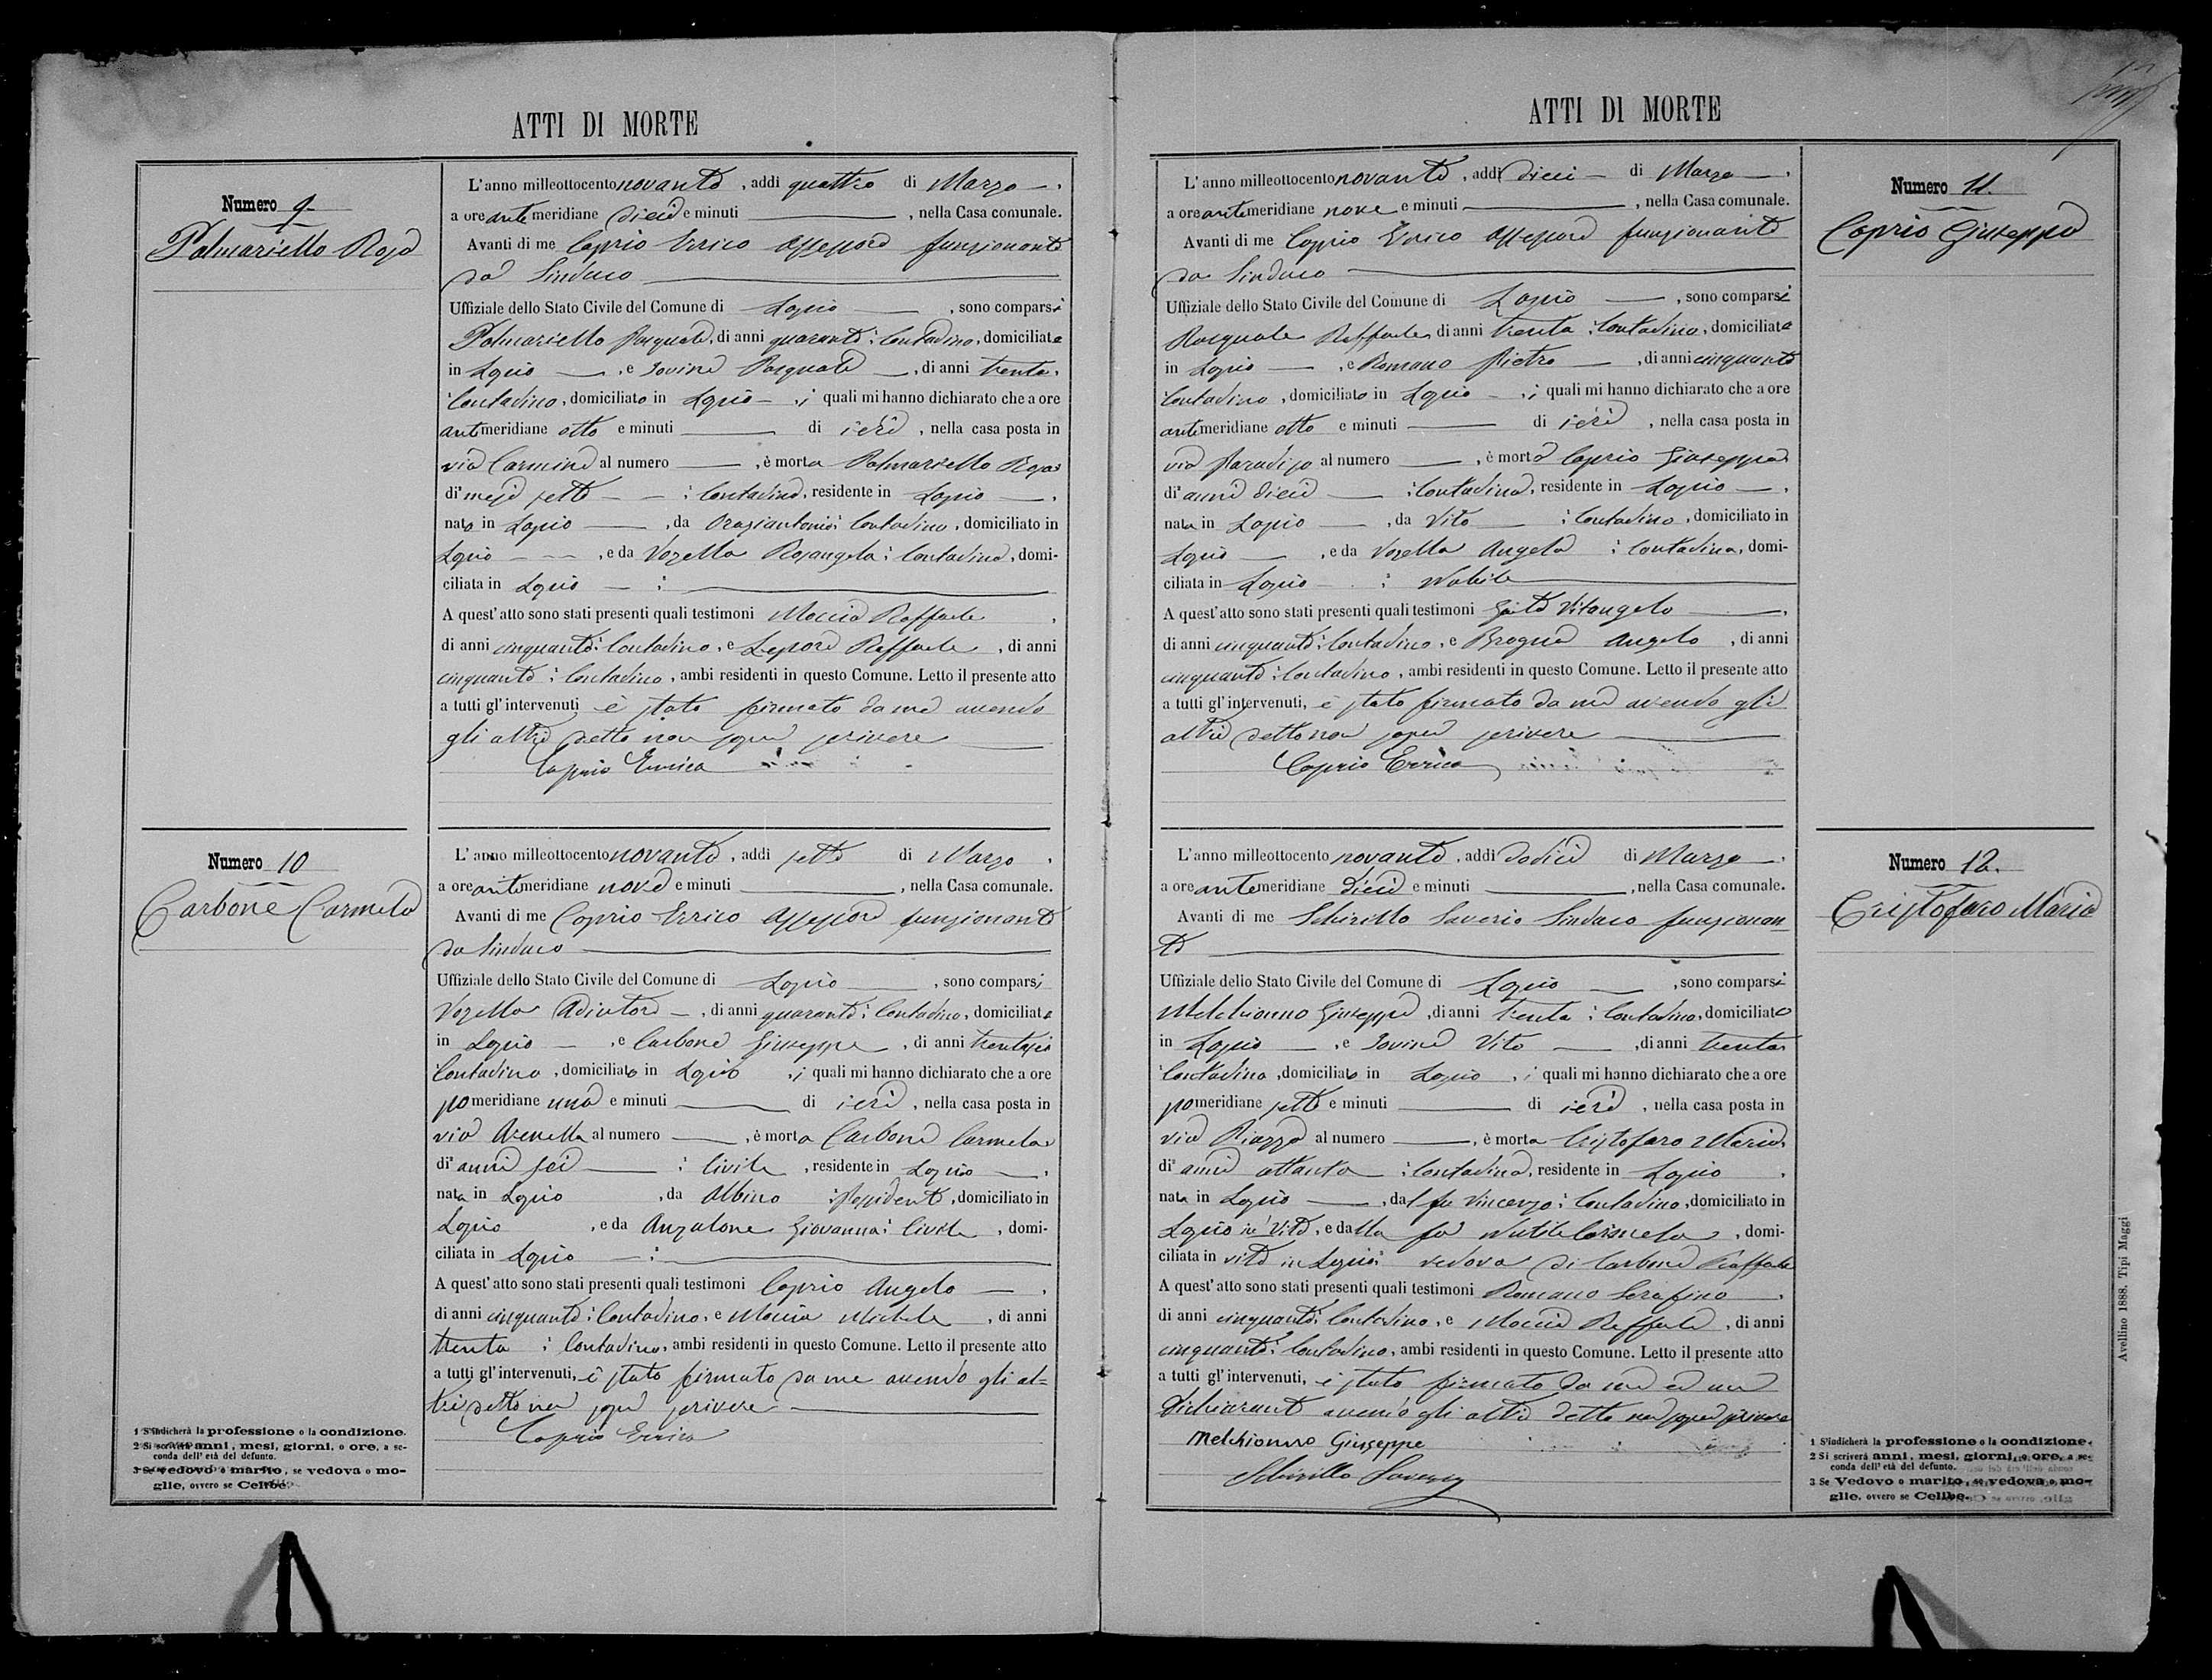 ATTI DI MORTE
Numero 9
Palmariello Rosa
L'anno milleottocento novanta, addì quattro di Marzo
a ore antemeridiane dieci e minuti , nella Casa comunale.
Avanti di me Caprio Errico Assessore funzionante
da Sindaco
Uffiziale dello Stato Civile del Comune di Lapio, sono comparsi
Palmariello Pasquale, di anni quaranta, Contadino, domiciliato
in Lapio, e Iovine Pasquale, di anni trenta,
Contadino, domiciliato in Lapio, i quali mi hanno dichiarato che a ore
antemeridiane otto e minuti di ieri, nella casa posta in
via Carmine al numero , è morta Palmariello Rosa
di mesi sette, Contadina, residente in Lapio,
nata in Lapio, da Oraziantonio, Contadino, domiciliato in
Lapio, e da Vozella Rosangela, Contadina, domi-
ciliata in Lapio
A quest'atto sono stati presenti quali testimoni Moccia Raffaele,
di anni cinquanta, Contadino, e Lepore Raffaele, di anni
cinquanta, Contadino, ambi residenti in questo Comune. Letto il presente atto
a tutti gl'intervenuti è stato firmato da me avendo
gli altri detto non saper scrivere
Caprio Errico
Numero 10
Carbone Carmela
L'anno milleottocento novanta, addì sette di Marzo.
a ore antimeridiane nove e minuti , nella Casa comunale.
Avanti di me Caprio Errico Assessore funzionante
da Sindaco
Uffiziale dello Stato Civile del Comune di Lapio, sono comparsi
Vozella Adiutore, di anni quaranta, Contadino, domiciliato
in Lapio, e Carbone Giuseppe, di anni trentasei
Contadino, domiciliato in Lapio, i quali mi hanno dichiarato che a ore
pomeridiane una e minuti di ieri, nella casa posta in
via Arenella al numero , è morta Carbone Carmela
di anni sei, Civile, residente in Lapio,
nata in Lapio, da Albino, Possidente, domiciliato in
Lapio, e da Anzalone Giovanna, Civile, domi-
ciliata in Lapio
A quest'atto sono stati presenti quali testimoni Caprio Angelo,
di anni cinquanta, Contadino, e Moccia Michele, di anni
trenta, Contadino, ambi residenti in questo Comune. Letto il presente atto
a tutti gl'intervenuti, è stato firmato da me avendo gli al=
tri detto non saper scrivere
Caprio Errico
1 S'indicherà la professione o la condizione.
2 Si scriverà anni, mesi, giorni, o ore, a se-
conda dell'età del defunto.
3 Se vedovo o marito, se vedova o mo-
glie, ovvero se Celibe.
ATTI DI MORTE
Numero 11.
Caprio Giuseppa
L'anno milleottocento novanta, addì dieci di Marzo.
a ore antimeridiane nove e minuti , nella Casa comunale.
Avanti di me Caprio Errico Assessore funzionante
da Sindaco
Uffiziale dello Stato Civile del Comune di Lapio, sono comparsi
Pasquale Raffaele, di anni trenta, Contadino, domiciliato
in Lapio, e Romano Pietro, di anni cinquanta
Contadino, domiciliato in Lapio, i quali mi hanno dichiarato che a ore
antimeridiane otto e minuti di ieri, nella casa posta in
via Paradiso al numero , è morta Caprio Giuseppa
di anni dieci, Contadina, residente in Lapio,
nata in Lapio, da Vito, Contadino, domiciliato in
Lapio, e da Vozella Angela, Contadina, domi-
ciliata in Lapio, Nubile
A quest'atto sono stati presenti quali testimoni Vitangelo,
di anni cinquanta, Contadino, e Brogna Angelo, di anni
cinquanta, Contadino, ambi residenti in questo Comune. Letto il presente atto
a tutti gl'intervenuti, è stato firmato da me avendo gli
altri detto non saper scrivere
Caprio Errico
Numero 12.
Cristofaro Maria
L'anno milleottocento novanta, addì dodici di Marzo.
a ore antemeridiane dieci e minuti , nella Casa comunale.
Avanti di me Schirillo Saverio Sindaco funzionan
te
Uffiziale dello Stato Civile del Comune di Lapio, sono comparsi
Melchionno Giuseppe, di anni trenta, Contadino, domiciliato
in Lapio, e Iovine Vito, di anni trenta
Contadino, domiciliato in Lapio, i quali mi hanno dichiarato che a ore
pomeridiane sette e minuti di ieri, nella casa posta in
via Piazza al numero , è morta Cristofaro Maria
di anni ottanta, Contadina, residente in Lapio,
nata in Lapio, dal fu Vincenzo, Contadino, domiciliato in
Lapio in vita, e dalla fu Carmela, domi-
ciliata in vita in Lapio, vedova di Carbone Raffaele
A quest'atto sono stati presenti quali testimoni Romano Serafino,
di anni cinquanta, Contadino, e Moccia Raffaele, di anni
cinquanta, Contadino, ambi residenti in questo Comune. Letto il presente atto
a tutti gl'intervenuti, è stato firmato da me ed un
dichiarante avendo gli altri detto non saper scrivere
Melchionno Giuseppe
Schirillo Saverio
1 S'indicherà la professione o la condizione.
2 Si scriverà anni, mesi, giorni, o ore, a se-
conda dell'età del defunto.
3 Se Vedovo o marito, se vedova o mo-
glie, ovvero se Celibe.
Avellino 1888. Tipi Maggi